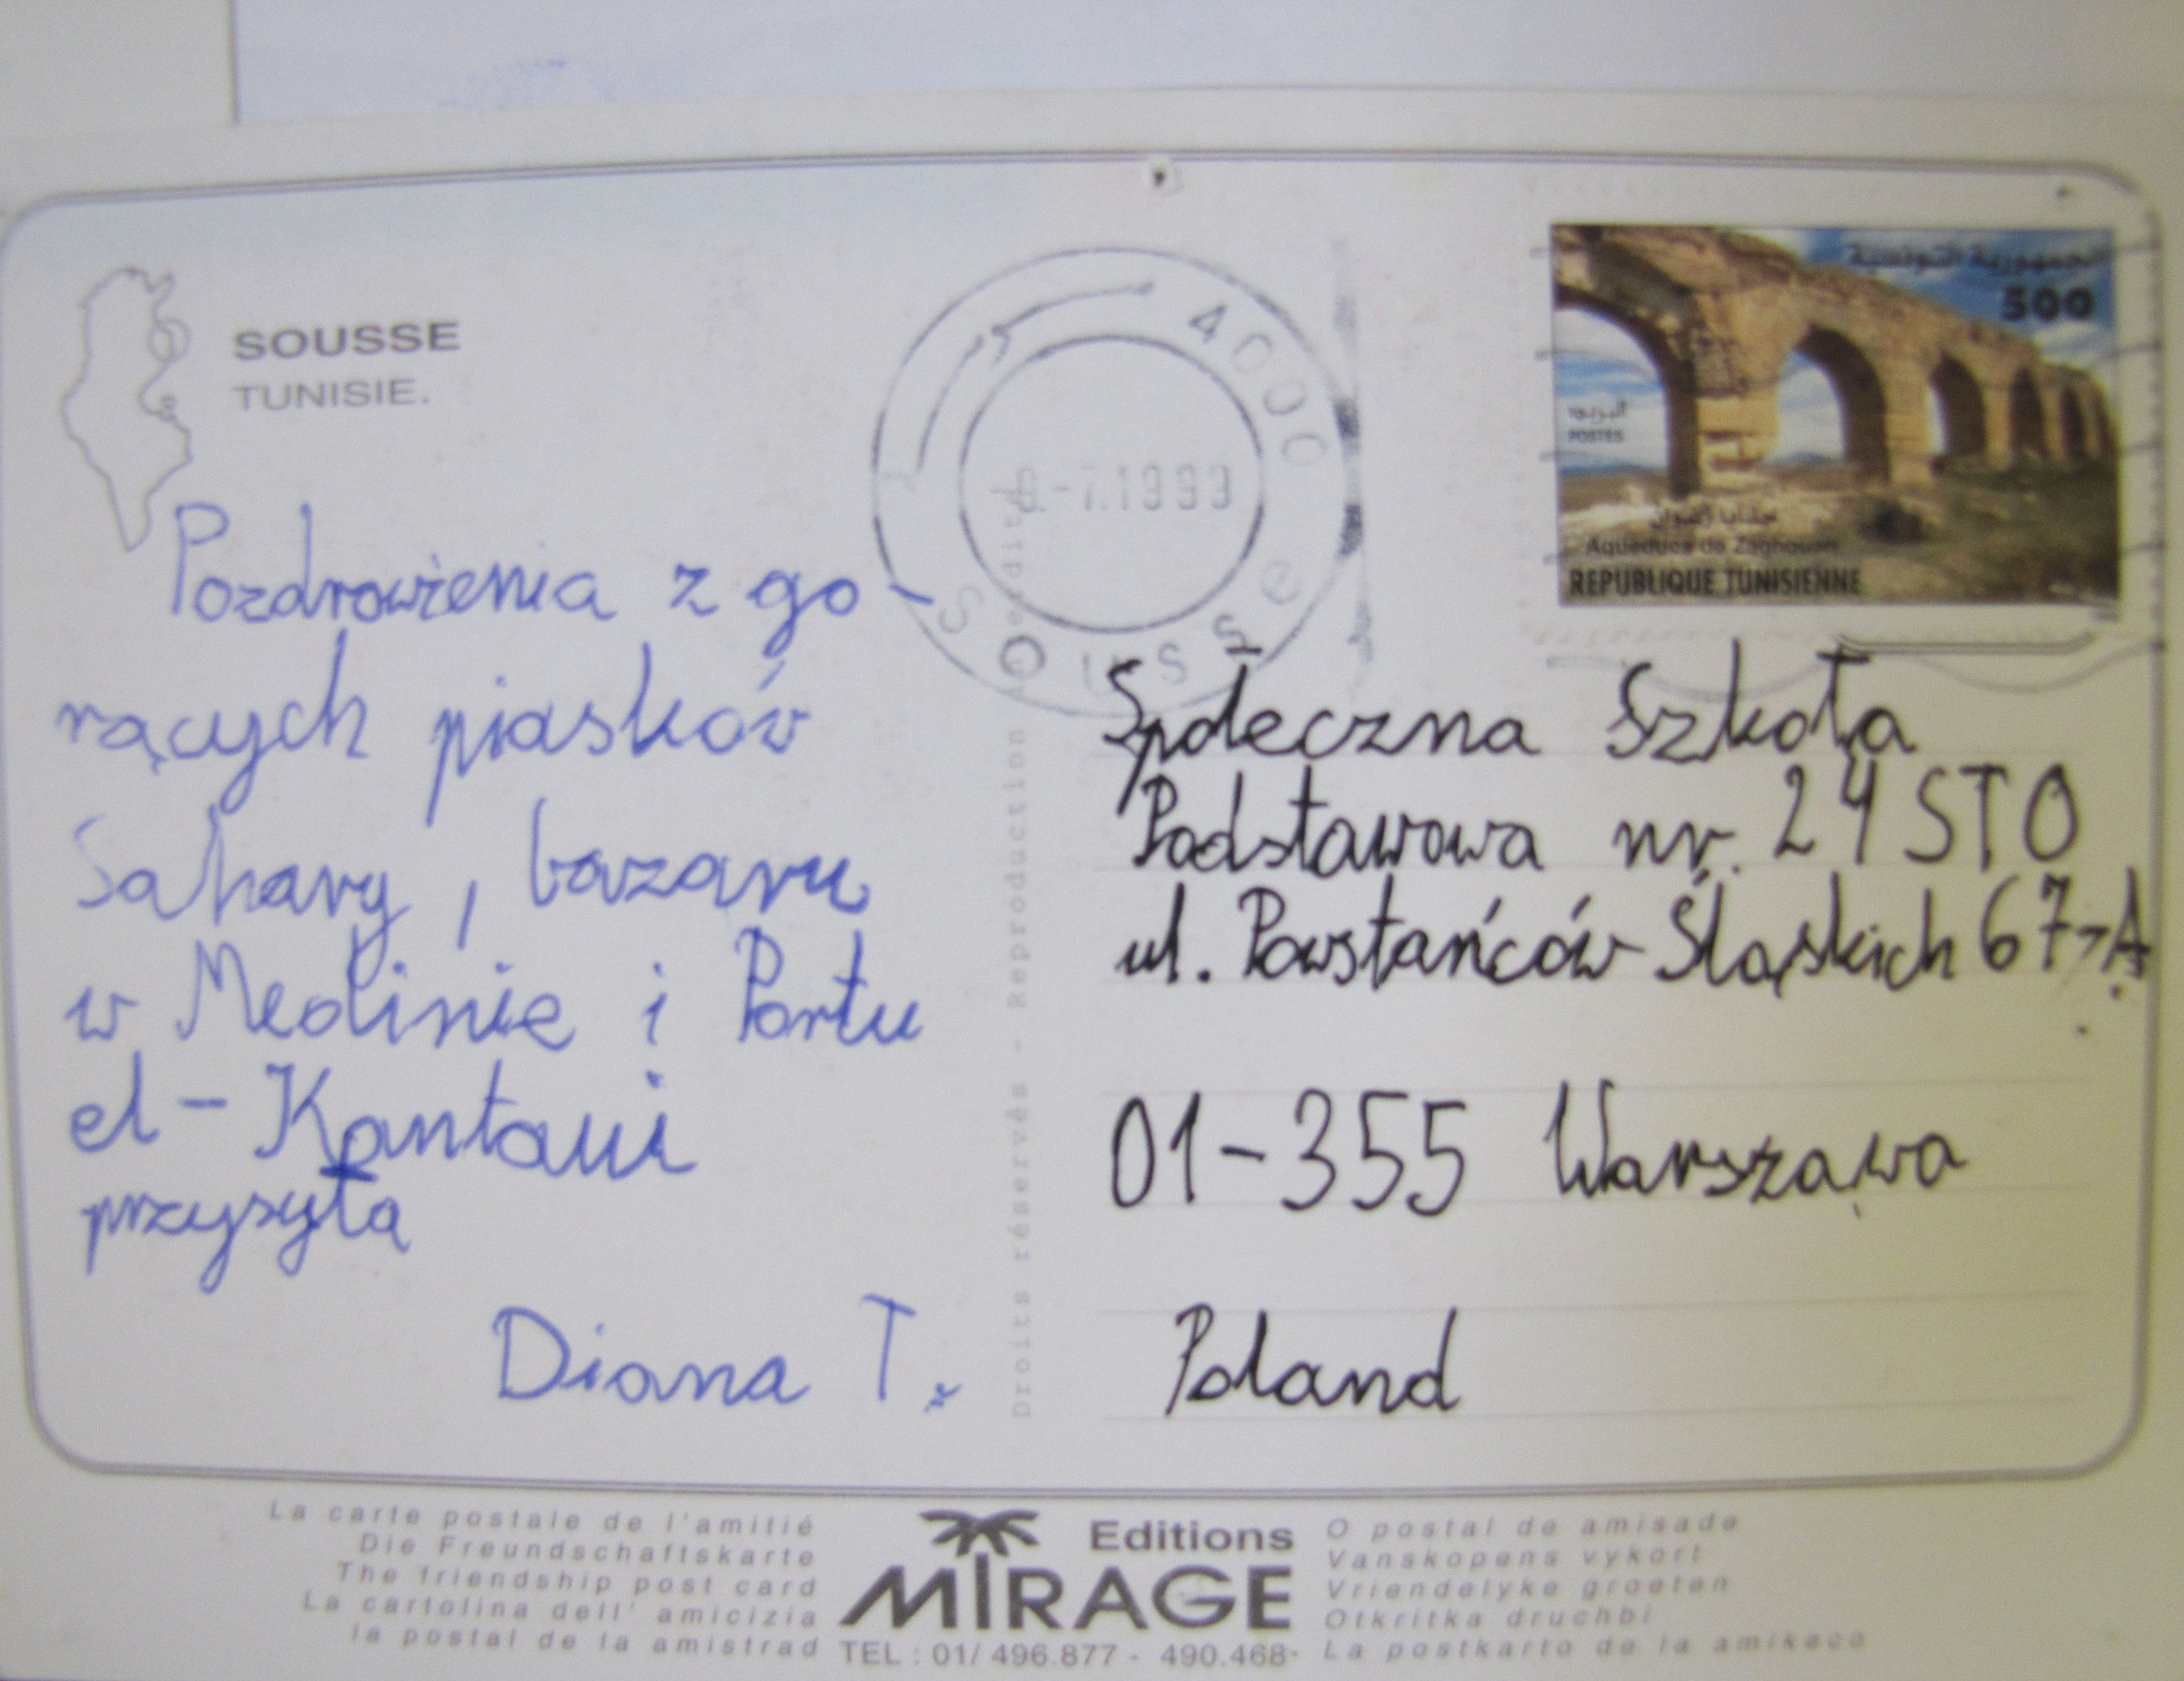 SOUSSE
TUNISIE.
Pozdrowienia z go-
rących piasków
Sahary, bazaru
w Medinie i Portu
el-Kantaui
przysyła
Diana T.
4000
-7.1999
Sousse
الجمهورية التونسية
500
البريد
POSTES
حنايا زغوان
Aqueduca de Zaghouan
REPUBLIQUE TUNISIENNE
Społeczna Szkoła
Podstawowa nr. 24 STO
ul. Powstańców Śląskich 67-A
01-355 Warszawa
Poland
Droits réservés - Reproduction
La carte postale de l'amitié
Die Freundschaftskarte
The friendship post card
La cartolina dell' amicizia
la postal de la amistrad
Editions
MIRAGE
TEL : 01/ 496.877 - 490.468
O postal de amisade
Vanskapens vykort
Vriendelyke groeten
Otkritka druchbi
La postkarto de la amikeco